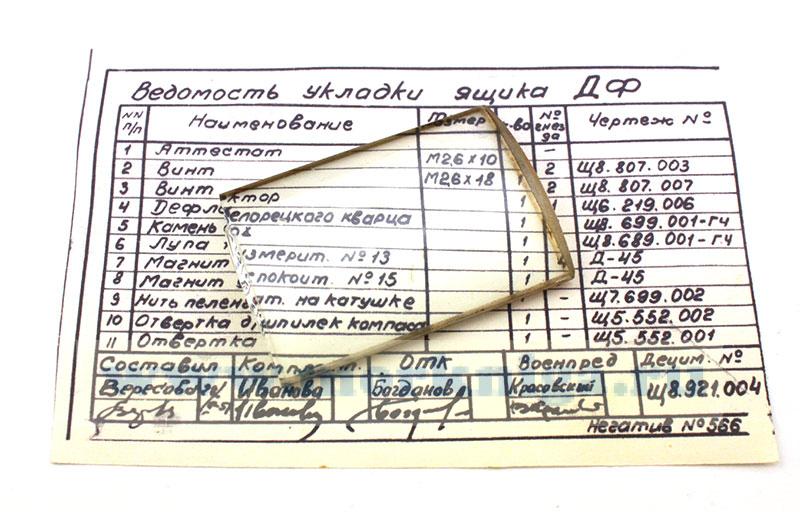 Ведомость укладки ящика ДФ
NN п/п Наименование Размер к-во № гнезда Чертеж №
1 Аттестат –
2 Винт М2,6×10 1 2 Щ8.807.003
3 Винт М2,6×18 1 2 Щ8.807.007
4 Дефлектор 1 1 Щ6.219.006
5 Камень белорецкого кварца 1 Щ8.699.001-гч
6 Лупа 1 1 Щ8.689.001-гч
7 Магнит измерит. №13 1 1 Д-45
8 Магнит успокоит. №15 1 1 Д-45
9 Нить пеленгат. на катушке 1 – Щ7.699.002
10 Отвертка д/шпилек компаса 1 – Щ5.552.002
11 Отвертка 1 – Щ5.552.001
Составил Комплект. ОТК Военпред Децим. №
Вересовая Иванова Богданов Красовский Щ8.921.004
Негатив №566